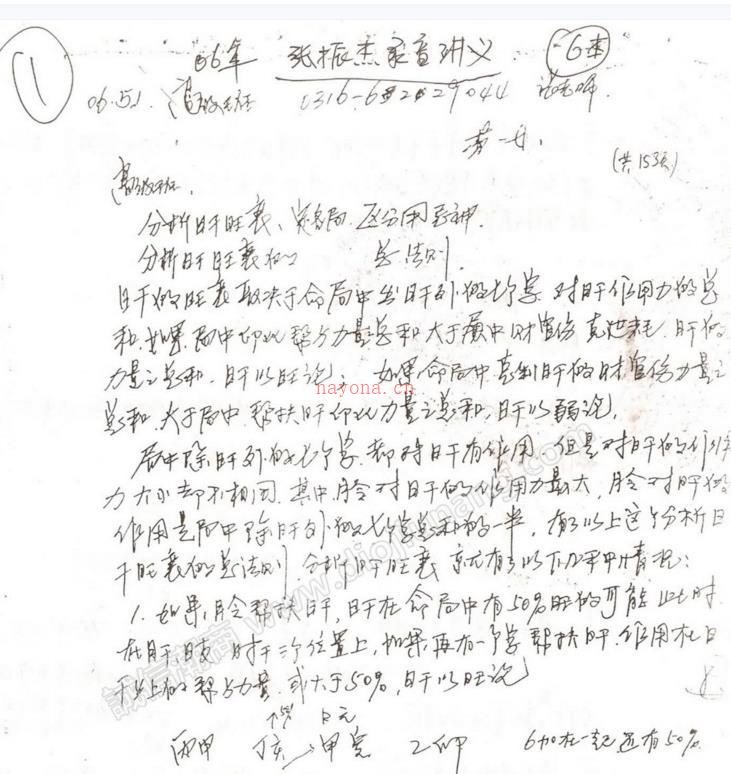 ①
06年 张振杰录音讲义 6本
06.5.1. 高级班 0316-6 2029044
第一女.
(共153页)
高级班.
分析日干旺衰、定格局.区分用忌神.
分析日干旺衰的 总法则.
日干的旺衰取决于命局中出日干外的七个字 对日干作用力的总
和.如果局中印比帮扶力量总和大于局中财官伤克泄耗.日干的
力量之总和.日干以旺论; 如果命局中克制日干的财官伤力量之
总和.大于局中帮扶日干印比力量之总和.日干以弱论.
局中除日干外的七个字都对日干有作用.但是对日干的作用
力大小却不相同.其中月令对日干的作用力最大,月令对日干的
作用是局中除日干外的七个字总和的一半,有了以上这个分析日
干旺衰的总法则 分析日干旺衰 就有了以下几种情况:
1.如果月令帮扶日干,日干在命局中有50%旺的可能 此时
在月干,日支 时干三个位置上,如果再有一个字帮扶日干.作用在日
干上的帮扶力量.或大于50%,日干以旺论
日元
丙甲 丁亥 甲寅 乙卯 6加在一起还有50%
nayona.cn
www.diojiunang.com
诚信